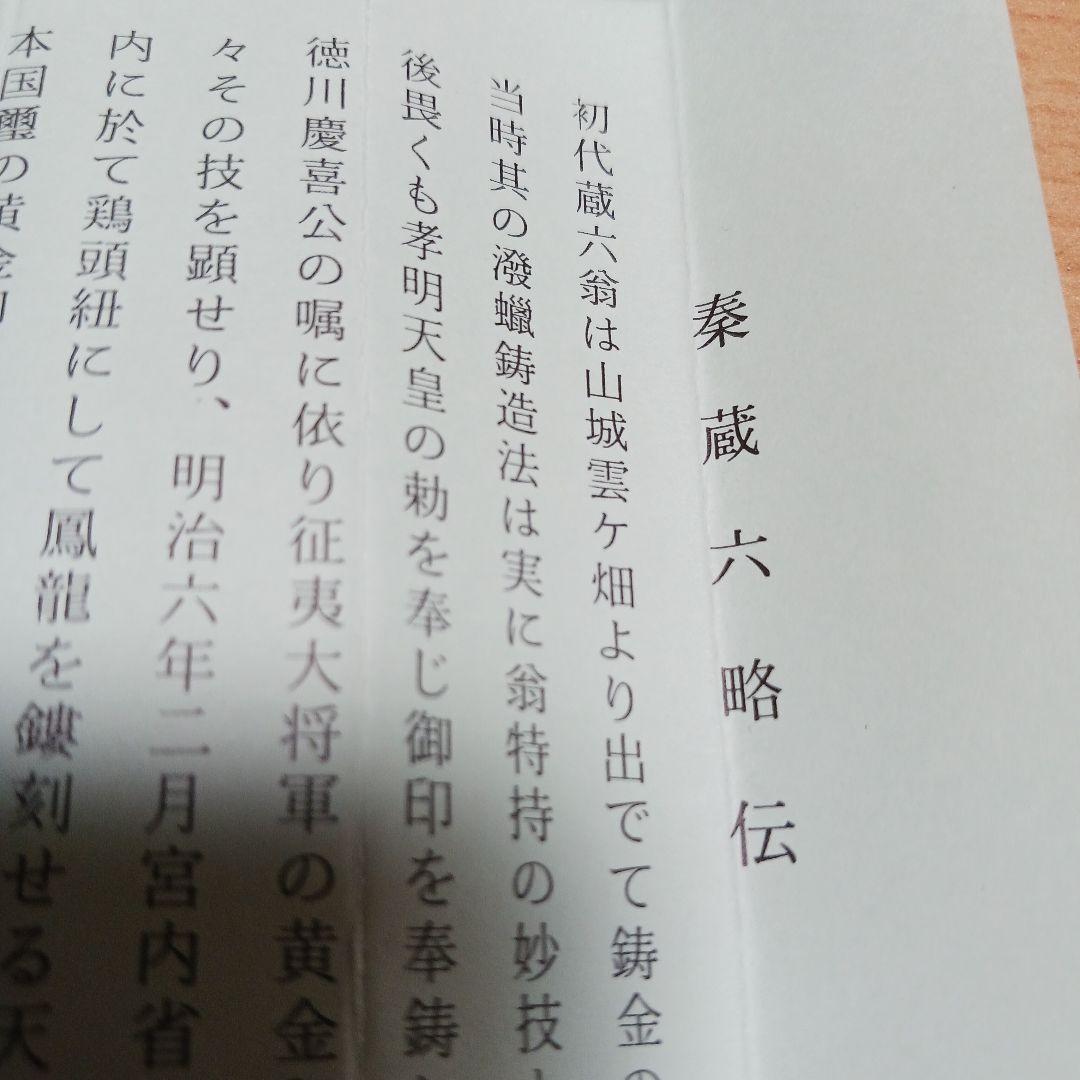 秦蔵六略伝
初代蔵六翁は山城雲ケ畑より出でて鋳金の
当時其の潑蠟鋳造法は実に翁特持の妙技
後畏くも孝明天皇の勅を奉じ御印を奉鋳
徳川慶喜公の嘱に依り征夷大将軍の黄金
々その技を顕せり、明治六年二月宮内省
内に於て鶏頭紐にして鳳龍を鏤刻せる天
本国璽の黄金印